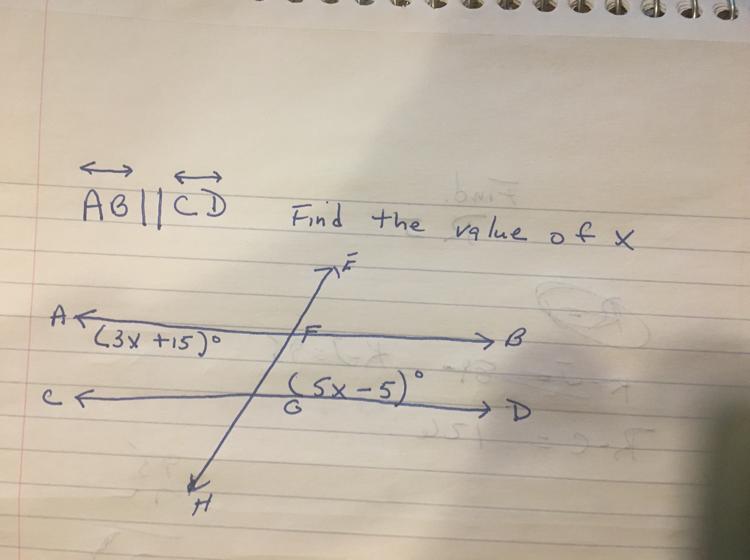 AB || CD Find the value of x
E
A F B
(3x + 15)°
(5x - 5)°
C G D
H